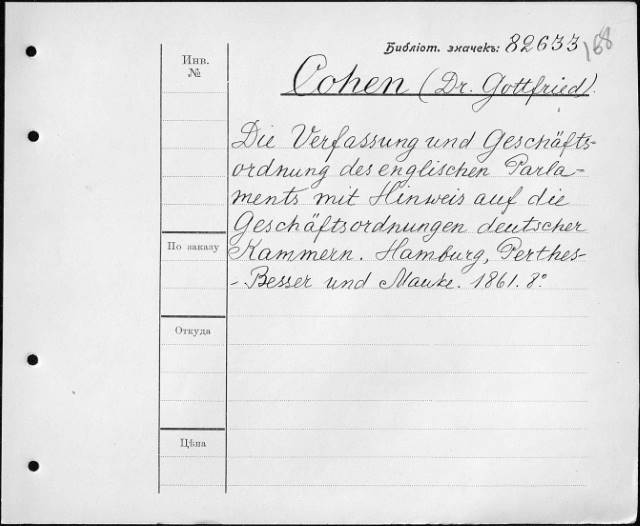 Библіот. значекъ: 82633
168
Инв.
№
Cohen (Dr. Gottfried).
Die Verfassung und Geschäfts-
ordnung des englischen Parla-
ments mit Hinweis auf die
Geschäftsordnungen deutscher
Kammern. Hamburg, Perthes-
- Besser und Mauke. 1861. 8º
По заказу
Откуда
Цѣна